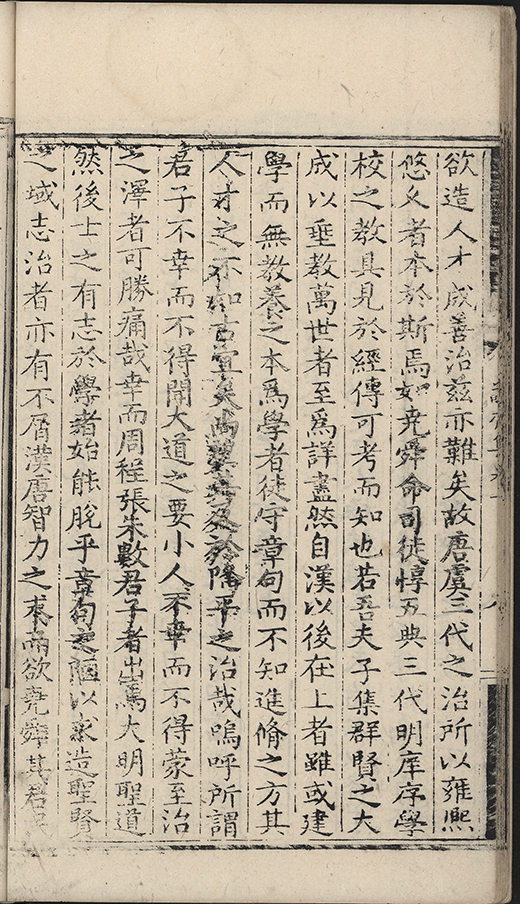 欲造人才成善治玆亦難矣故唐虞三代之治所以雍熙
悠久者本於斯焉如堯舜命司徒惇五典三代明庠序學
校之教具見於經傳可考而知也若吾夫子集群賢之大
成以垂教萬世者至爲詳盡然自漢以後在上者雖或建
學而無教養之本爲學者徒守章句而不知進脩之方其
人才之不如古宜矣尚於隆平之治哉嗚呼所謂
君子不幸而不得聞大道之要小人不幸而不得蒙至治
之澤者可勝痛哉幸而周程張朱數君子者出焉大明聖道
然後士之有志於學者始能脫乎章句之陋以求造聖賢
之域志治者亦有不屑漢唐智力之而欲堯舜其君